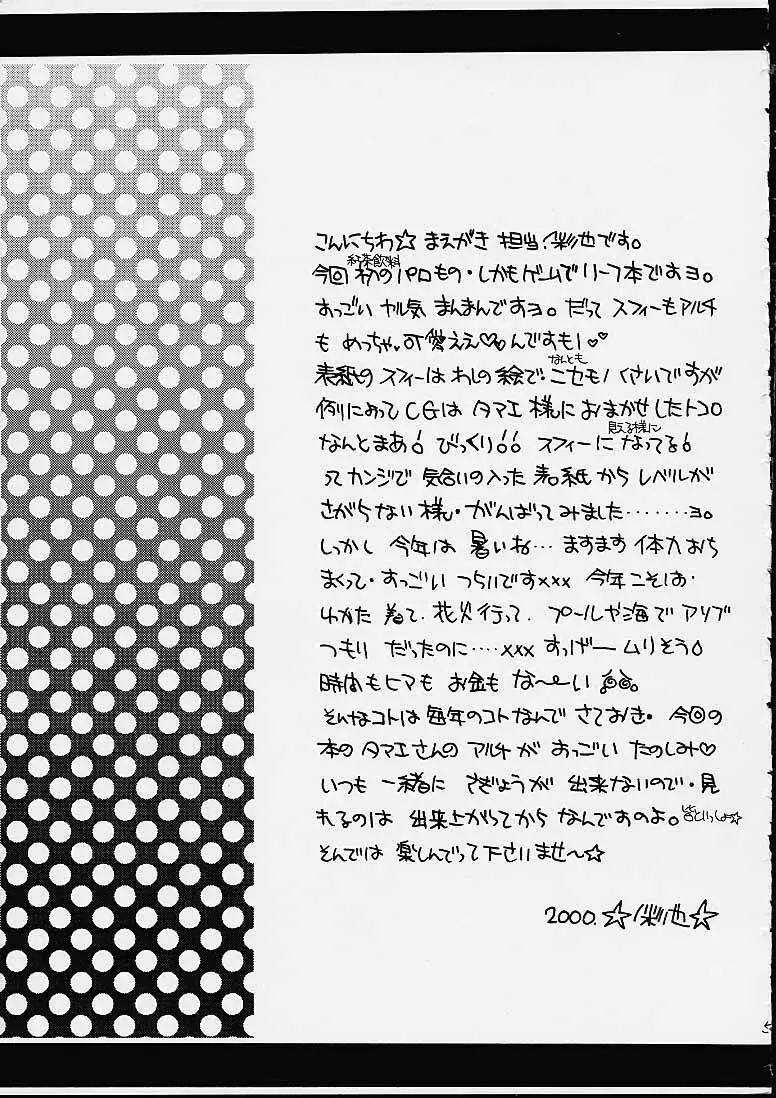 こんにちわ☆ まえがき 担当、彩也です。
紅茶飲料
今回 初のパロもの・しかもゲームでリーフ本ですヨ。
すっごい ヤル気 まんまんですヨ。だって スフィーもアルチ
も めっちゃ可愛ええ♡もんですもノ♡♡
なんとも
表紙の スフィーは わしの絵で・ニセモノくさいですが
例によって CGは タマエ様に おまかせしたトコロ
見える様に
なんとまあ! びっくり!! スフィーに なってる!
ってカンジで 気合いの入った 表紙から レベルが
さがらない様・がんばってみました‥‥‥‥ヨ。
しっかし 今年は 暑いね… ますます 体力おち
まくって・すっごい つらいですxxx 今年こそは・
ゆかた 着て、花火行って、プールや海で アソブ
つもり だったのに‥‥xxx すっげー ムリそう
時間も ヒマも お金も な〜い 。
そんなコトは 毎年のコトなんで さておき・ 今回の
本の タマエさんの アルチが すっごい たのしみ♡
いつも 一緒に さぎょうが 出来ないので・見
れるのは 出来上がってから なんですのよ。
そんでは 楽しんでって下さいませ〜☆
2000. ☆彩也☆